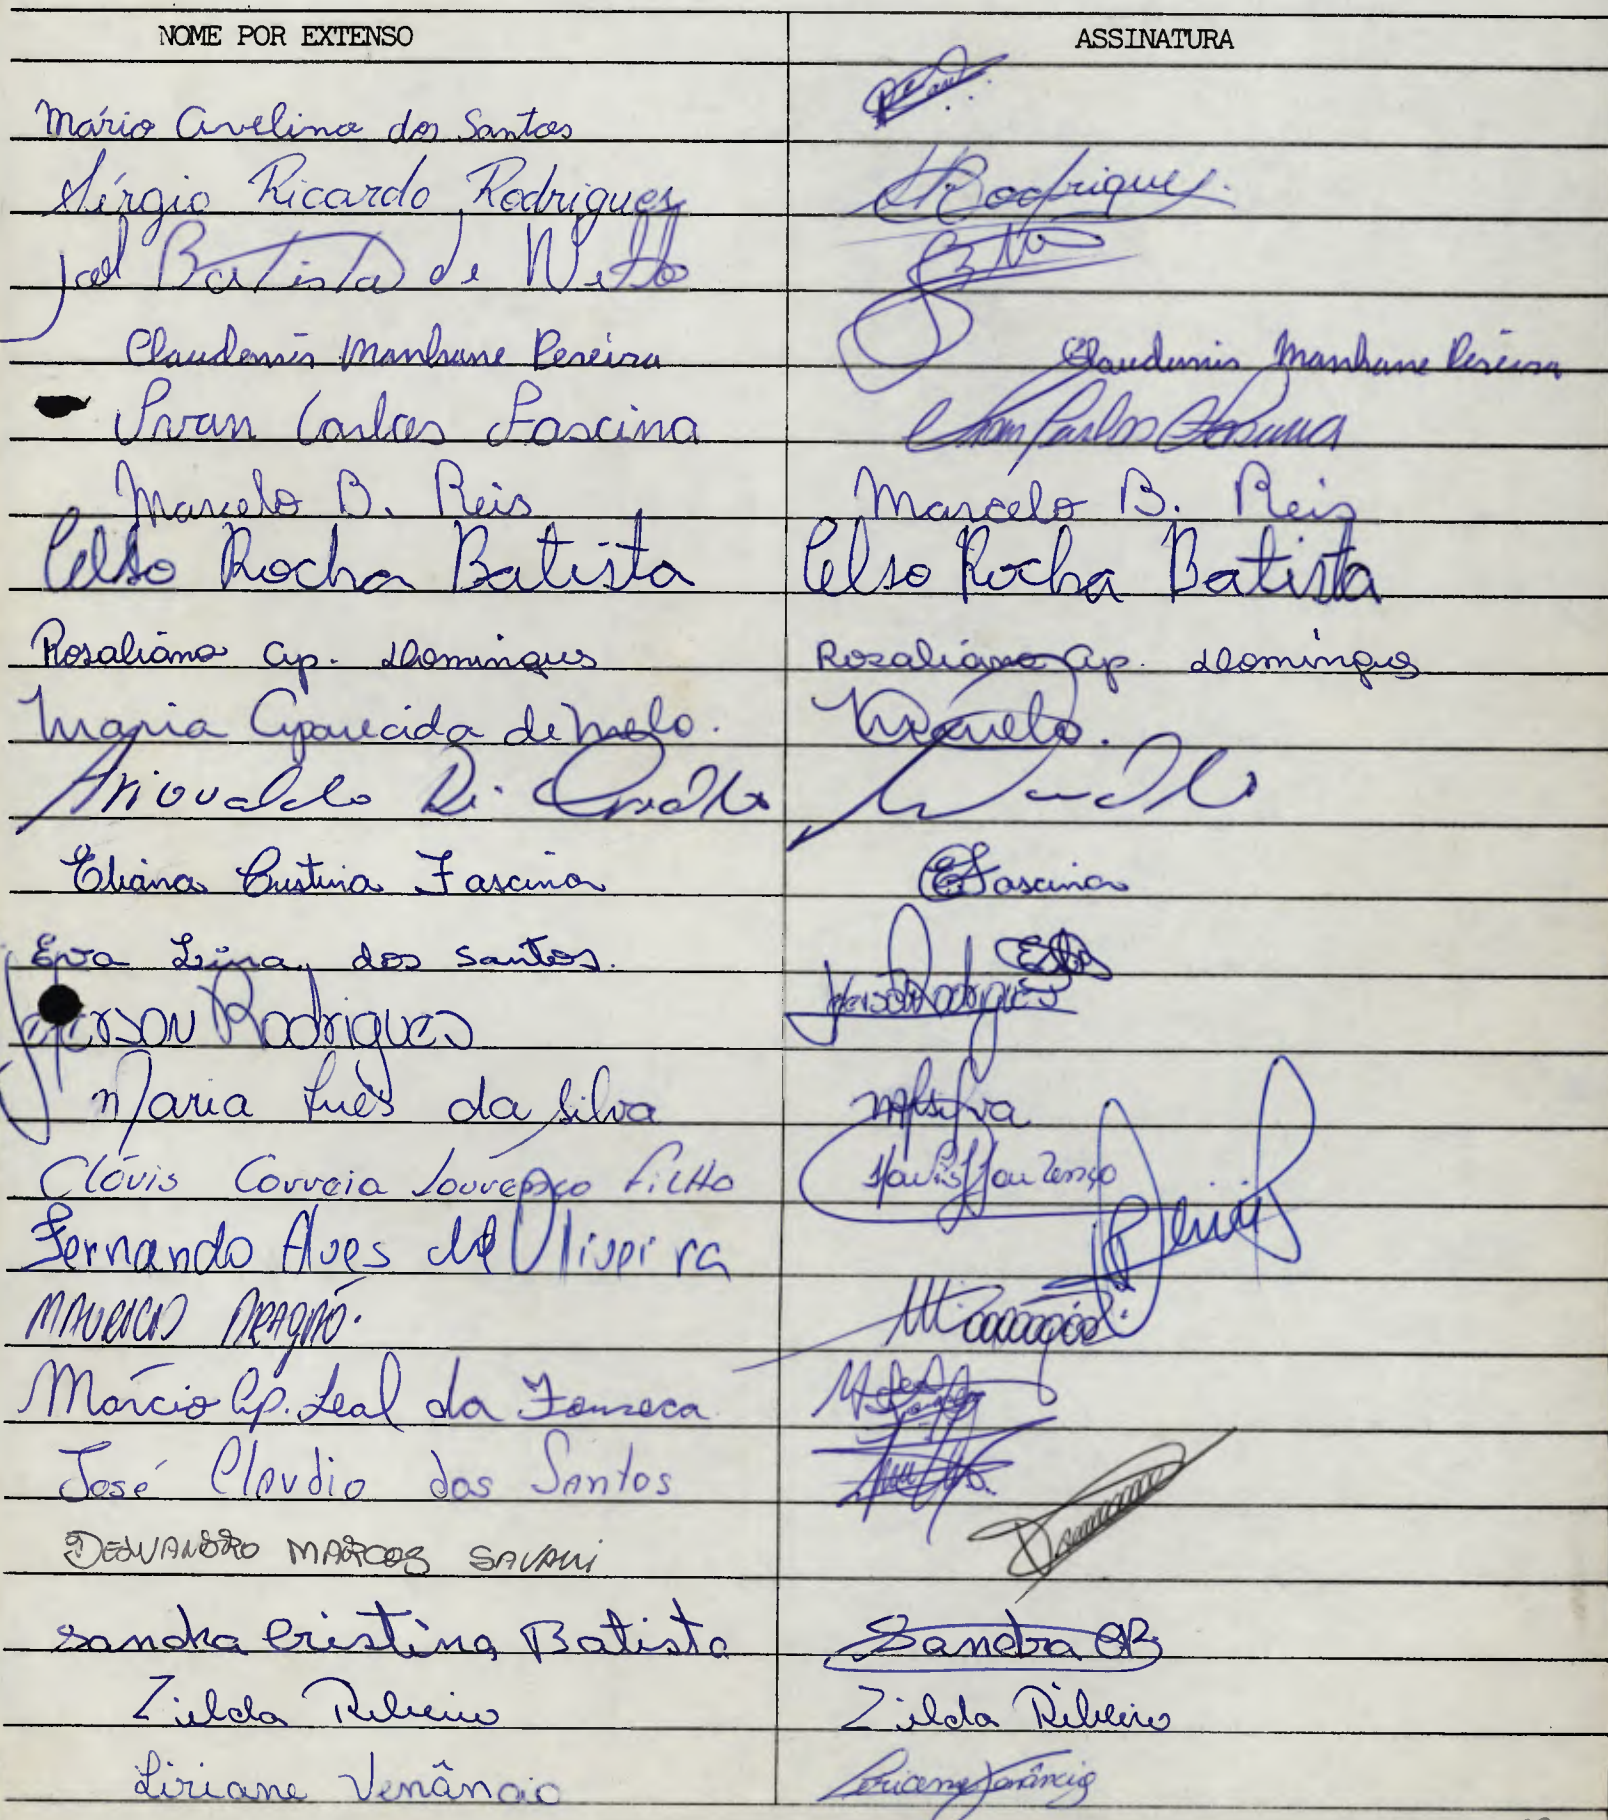 NOME POR EXTENSO ASSINATURA
Mário Avelino dos Santos
Sérgio Ricardo Rodrigues SRodrigues
Joel Batista de
Claudemir Manhane Pereira Claudemir Manhane Pereira
Ivan Carlos Fascina Ivan Carlos Fascina
Marcelo B. Reis Marcelo B. Reis
Celso Rocha Batista Celso Rocha Batista
Rosaliana Ap. Domingues Rosaliana Ap. Domingues
Maria Aparecida de Melo.
Ariovaldo
Eliana Cristina Fascina EFascina
Eva Lina dos Santos.
Jeferson Rodrigues Jeferson Rodrigues
Maria Inês da Silva
Clóvis Correia Lourenço Filho
Fernando Alves de Oliveira
MAURICIO ARAGÃO.
Márcio Ap. Leal da Fonseca
José Claudio dos Santos
MARCOS
Sandra Cristina Batista Sandra CB
Zilda Ribeiro Zilda Ribeiro
Liriane Venâncio Liriane Venâncio